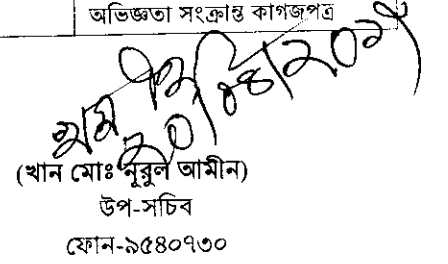 অভিজ্ঞতা সংক্রান্ত কাগজপত্র
(খান মোঃ নূরুল আমীন)
উপ-সচিব
ফোন-৯৫৪০৭৩০